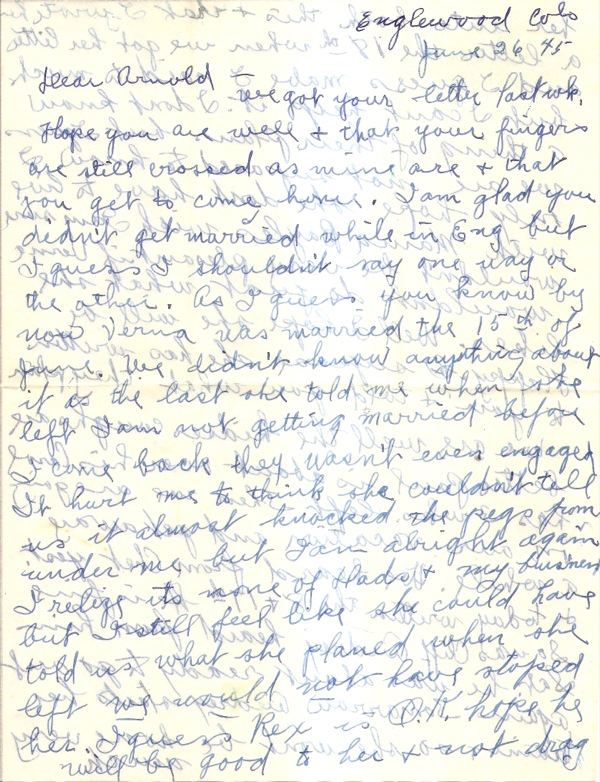 Englewood Colo
June 26 45
Dear Arnold —
We got your letter last wk.
Hope you are well & that your fingers
are still crossed as mine are & that
you get to come home. I am glad you
didn't get married while in Eng but
I guess I shouldn't say one way or
the other. As I guess you know by
now Verna was married the 15th of
June. We didn't know anything about
it as the last she told me when she
left I am not getting married before
I come back they wasn't even engaged
It hurt me to think she couldn't tell
us it almost knocked the pegs from
under me but I am alright again
I relize its none of Dads & my business
but I still feel like she could have
told us what she planed when she
left we would not have stoped
her. I guess Rex is O.K. hope he
will be good to her & not drag